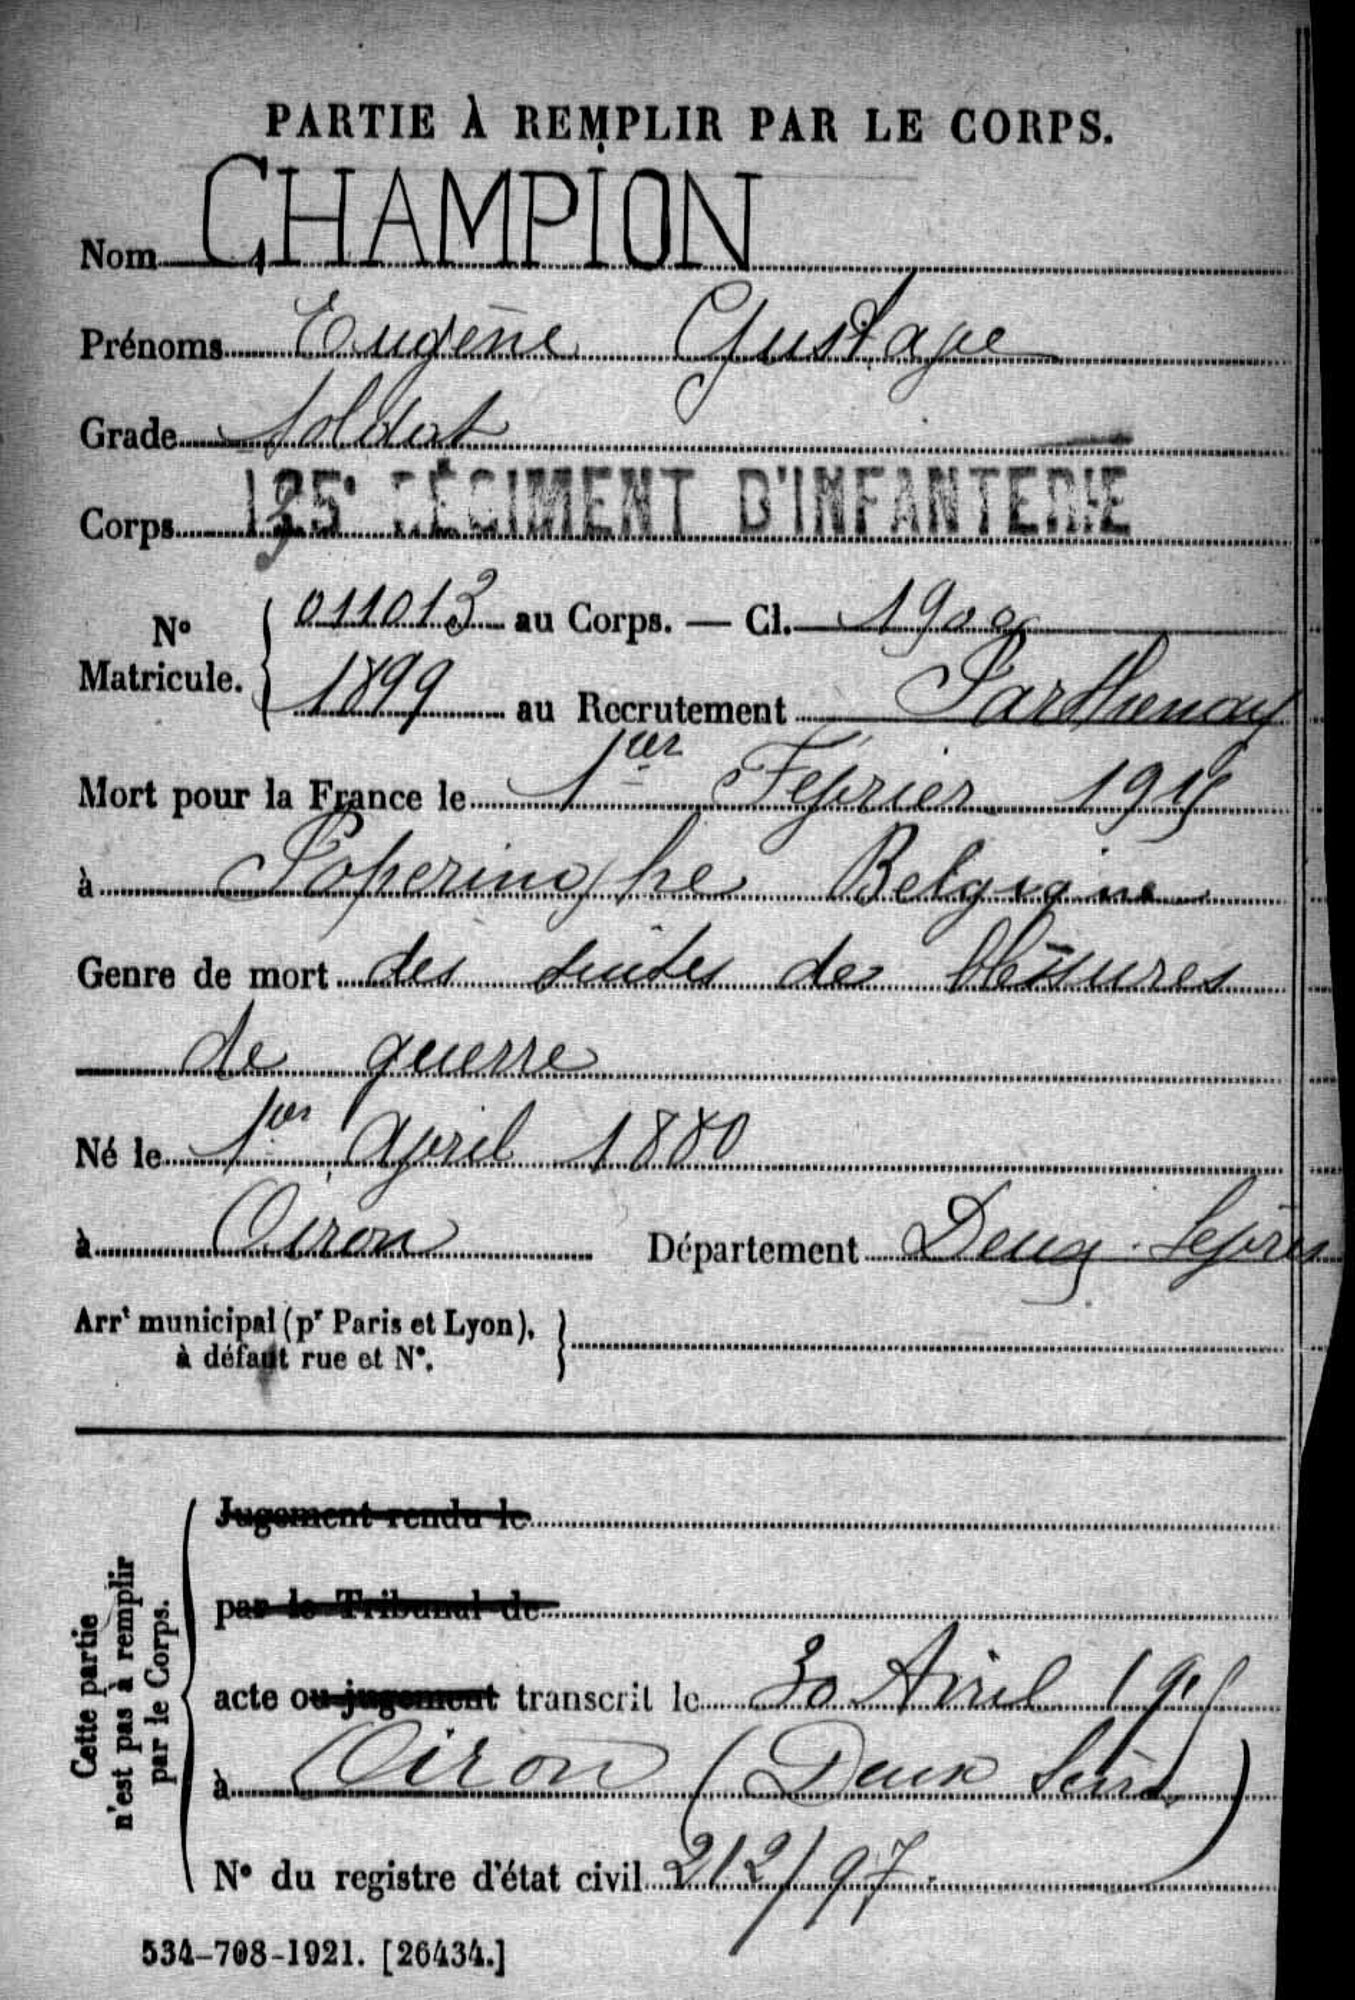 PARTIE À REMPLIR PAR LE CORPS.
Nom CHAMPION
Prénoms Eugène Gustave
Grade Soldat
Corps 125e RÉGIMENT D'INFANTERIE
No Matricule. 011013 au Corps. — Cl. 1900
1899 au Recrutement Parthenay
Mort pour la France le 1er Février 1915
à Poperinghe Belgique
Genre de mort des suites de blessures
de guerre
Né le 1er Avril 1880
à Oiron Département Deux-Sèvres
Arrt municipal (pr Paris et Lyon),
à défaut rue et No.
Cette partie n'est pas à remplir par le Corps.
Jugement rendu le
par le Tribunal de
acte ou jugement transcrit le 30 Avril 1915
à Oiron (Deux Sèvres)
No du registre d'état civil 212/97.
534-708-1921. [26434.]